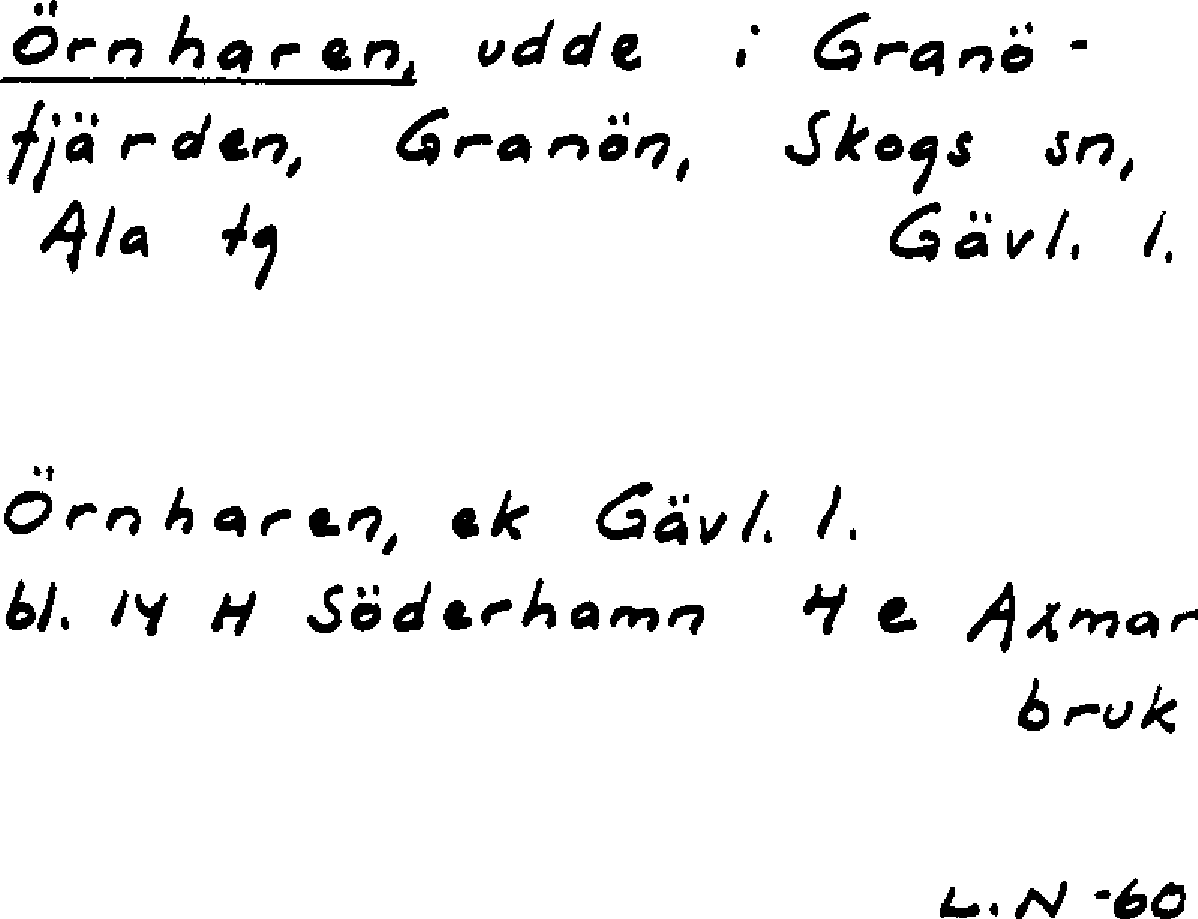 Örnharen, udde i Granö-
fjärden, Granön, Skogs sn,
Ala tg Gävl. l.
Örnharen, ek Gävl. l.
bl. 14 H Söderhamn 4 e Axmar
bruk
L.N -60